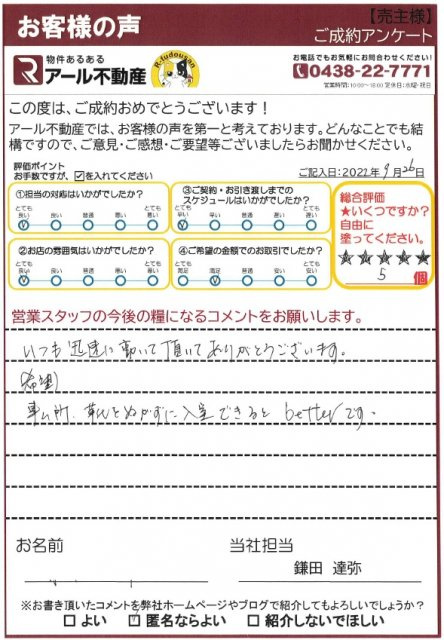 お客様の声
【売主様】
ご成約アンケート
物件あるある
R アール不動産
R-fudousan
お電話でもお気軽にお問合わせください！
0438-22-7771
営業時間:10:00～18:00 定休日:水曜・祝日
この度は、ご成約おめでとうございます！
アール不動産では、お客様の声を第一と考えております。どんなことでも結
構ですので、ご意見・ご感想・ご要望等ございましたらお聞かせください。
評価ポイント
お手数ですが、☑を入れてください
ご記入日:2022年9月26日
①担当の対応はいかがでしたか？
とても良い 良い 普通 悪い とても悪い
③ご契約・お引き渡しまでの
スケジュールはいかがでしたか？
とても早い 早い 普通 遅い とても遅い
②お店の雰囲気はいかがでしたか？
とても良い 良い 普通 悪い とても悪い
④ご希望の金額でのお取引でしたか？
とても満足 満足 普通 安い とても安い
総合評価
★いくつですか？
自由に
塗ってください。
★★★★★
5 個
営業スタッフの今後の糧になるコメントをお願いします。
いつも迅速に動いて頂いてありがとうございます。
希望)
事ム所、革んとぬがずに入室できると betterです。
お名前
当社担当
鎌田 達弥
※お書き頂いたコメントを弊社ホームページやブログで紹介してもよろしいでしょうか？
□ よい □ 匿名ならよい □ 紹介しないでほしい